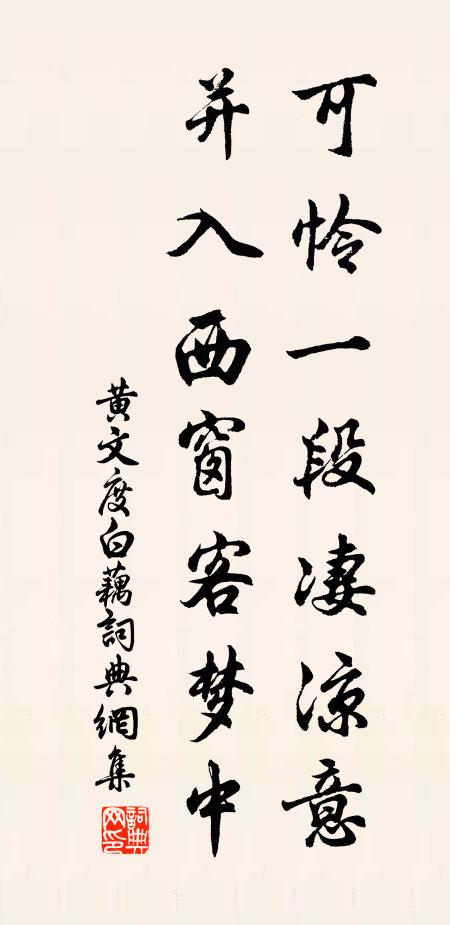 可怜一段凄凉意
并入西窗客梦中
黄文度白藕詞典網集
詞典网印